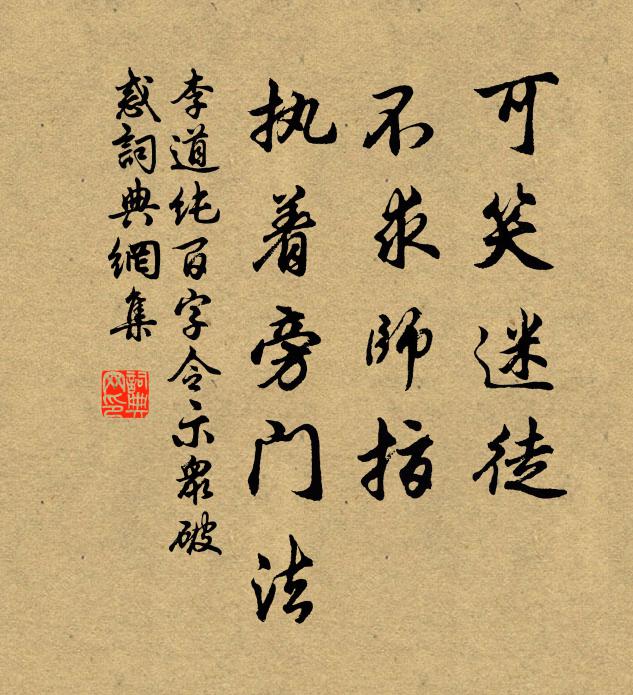 可笑迷徒
不求師指
执着旁門法
李道纯百字令示衆破
惑詞典網集
詞典
网印